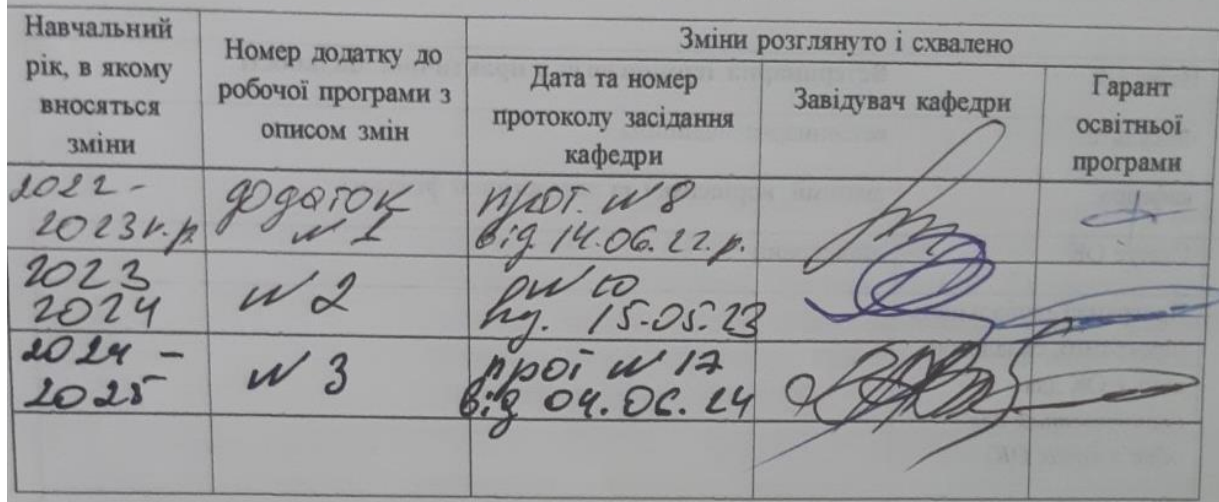 Навчальний
рік, в якому
вносяться
зміни
Номер додатку до
робочої програми з
описом змін
Зміни розглянуто і схвалено
Дата та номер
протоколу засідання
кафедри
Завідувач кафедри
Гарант
освітньої
програми
2022 -
2023 н.р
додаток
№ 1
прот. № 8
від 14.06.22.р.
2023
2024
№ 2
15.05.23
2024 -
2025
№ 3
прот № 17
від 04.06.24